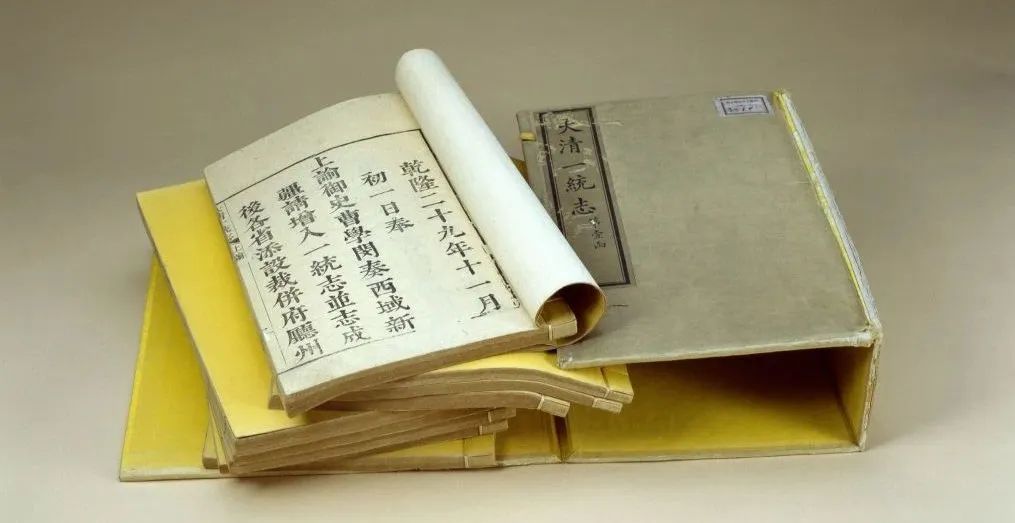 乾隆二十九年十一月
初一日奉
上諭御史曹學閔奏西域新
疆請增入一統志並志成
後各省添設裁併府廳州
大清一統志
第壹函